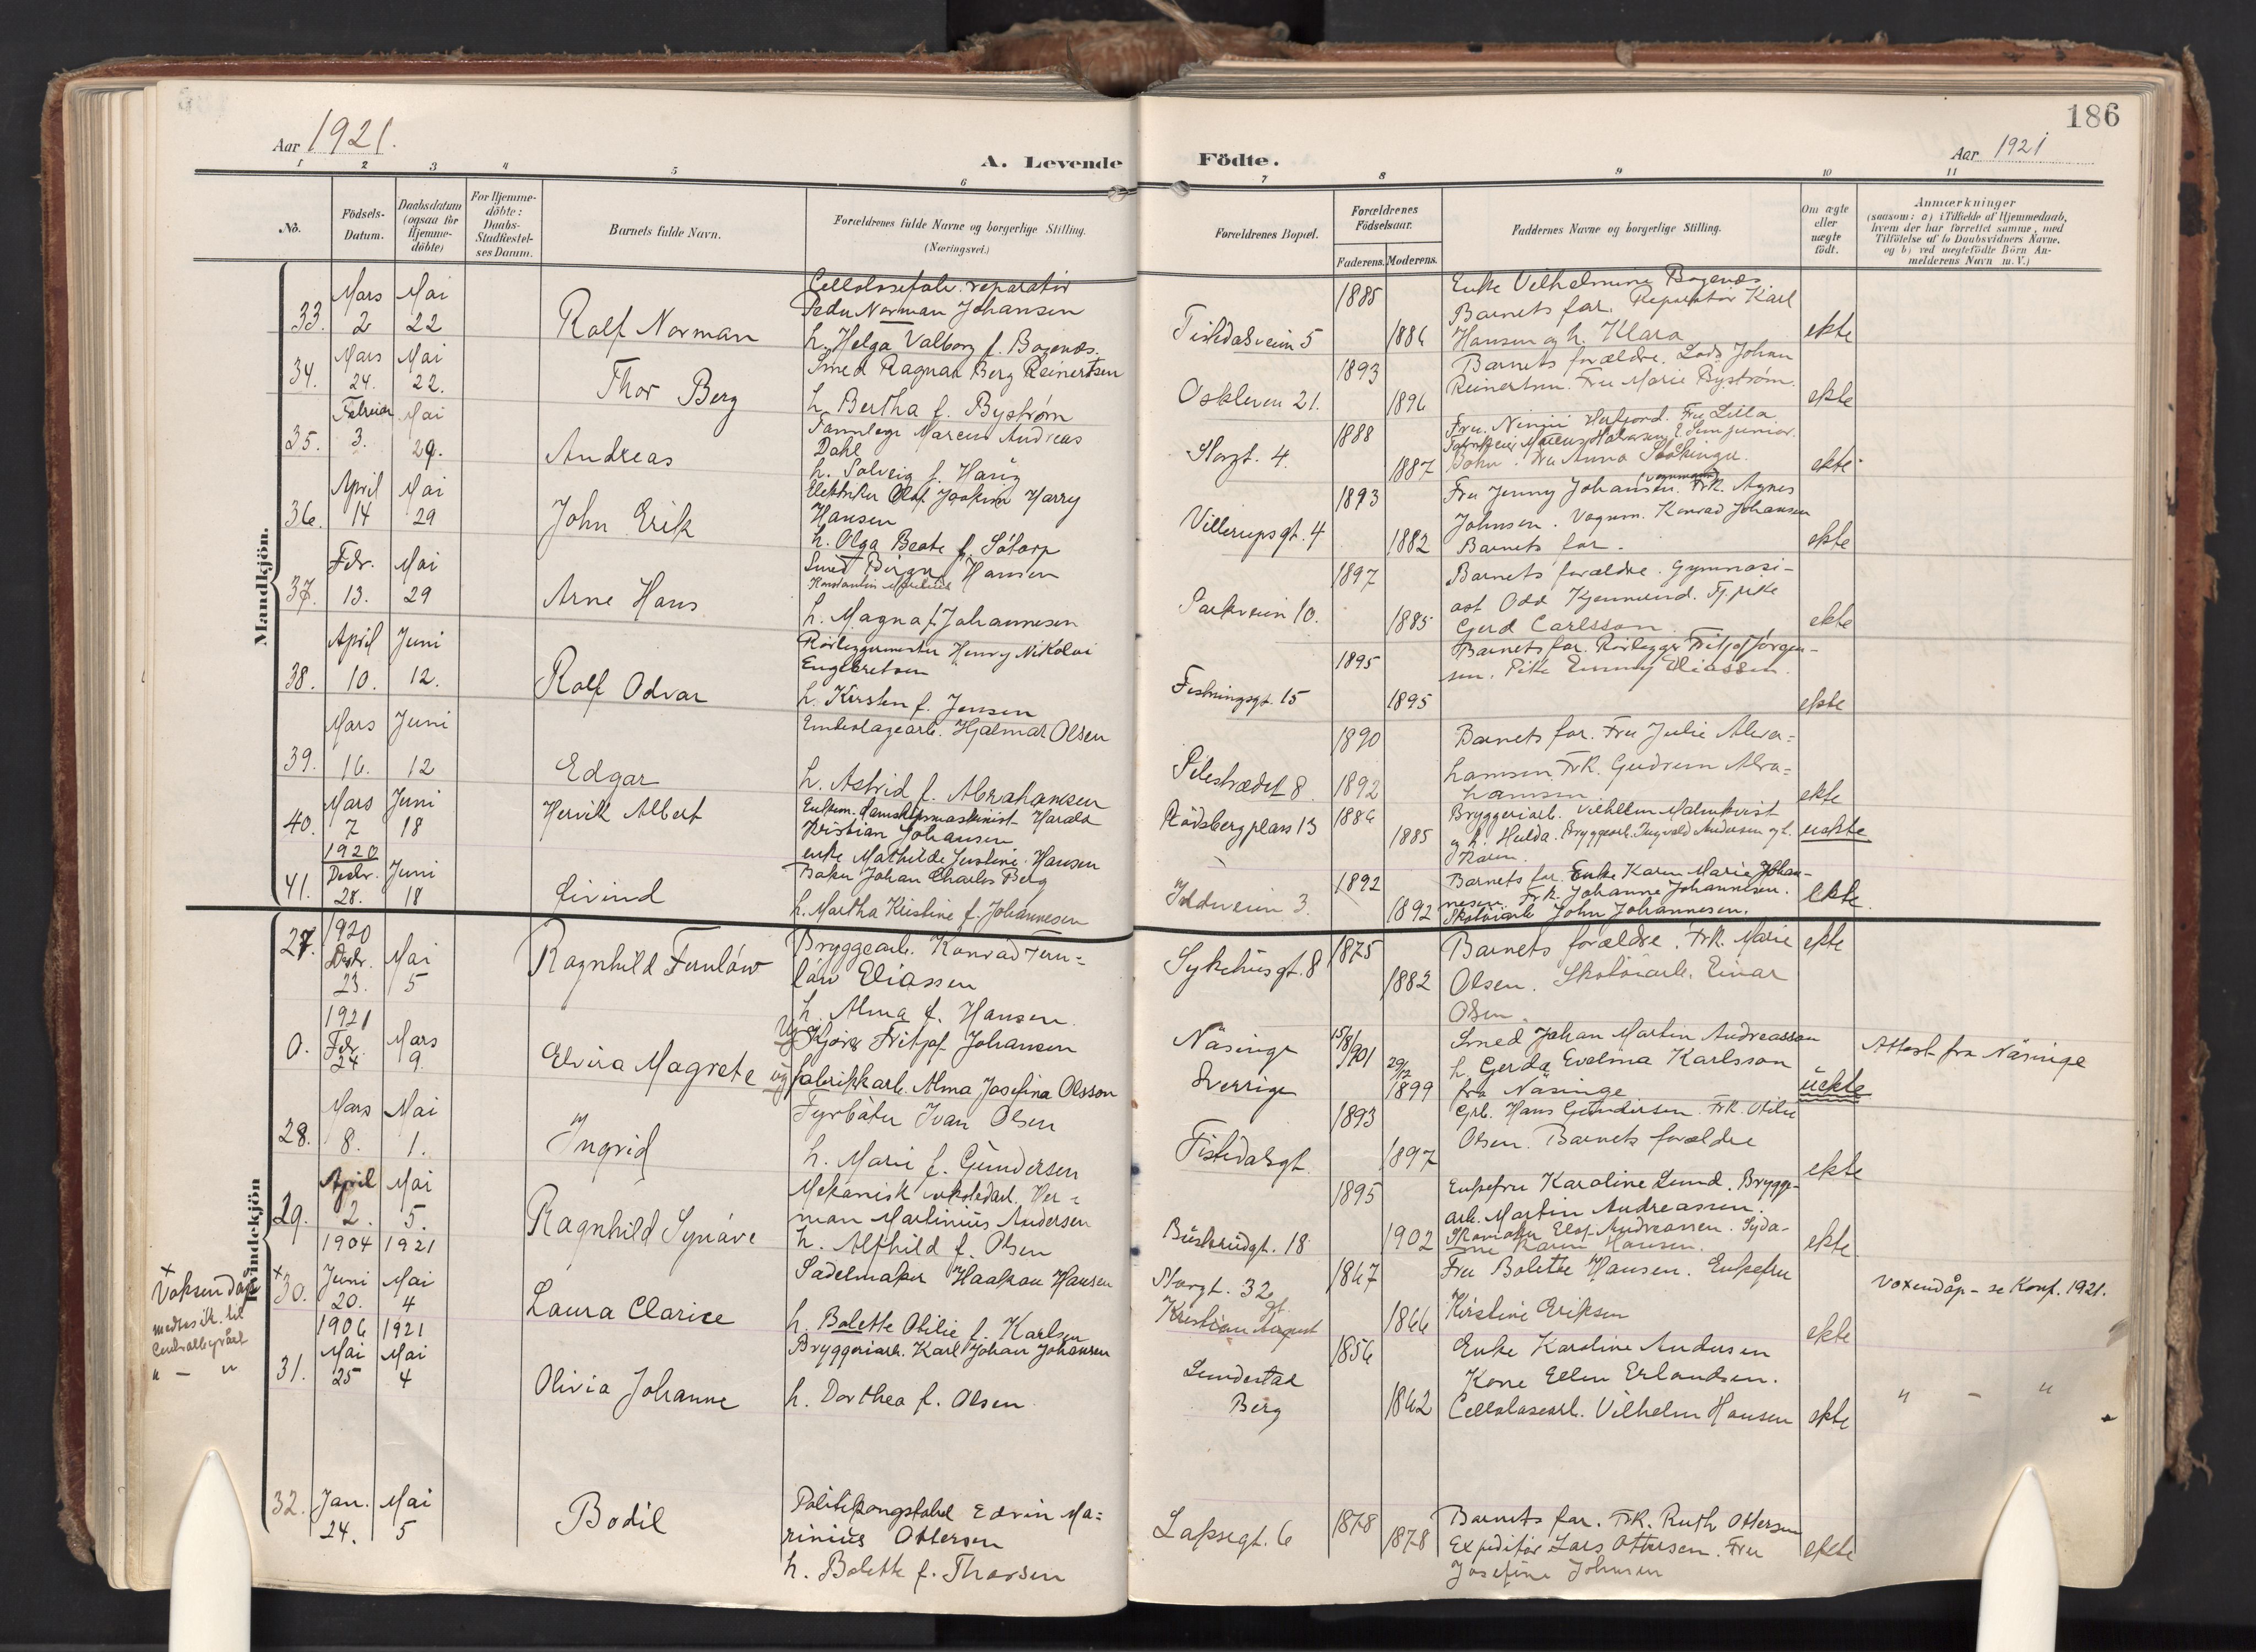 186
Aar 1921.
A. Levende Födte.
Aar 1921
1 2 3 4 5 6 7 8 9 10 11
No.
Födsels-Datum.
Daabsdatum (ogsaa for Hjemme-döbte)
For Hjemme-döbte: Daabs-Stadfæstel-ses Datum.
Barnets fulde Navn.
Forældrenes fulde Navne og borgerlige Stilling.
(Næringsvei.)
Forældrenes Bopæl.
Forældrenes Födselsaar.
Faderens. Moderens.
Faddernes Navne og borgerlige Stilling.
Om ægte eller uægte födt.
Anmærkninger
(saasom: a) i Tilfælde af Hjemmedaab,
hvem der har forrettet samme, med
Tilföielse af to Daabsvidners Navne,
og b) ved uægtefödte Börn An-
melderens Navn m. V.)
Mandkjön.
33. Mars 2 Mai 22
Rolf Norman
Cellulosefabr. reparatör
Peder Norman Johansen
h. Helga Valborg f. Bogenæs.
Tistedalsveien 5
1885 1886
Enke Vilhelmine Bogenæs
Barnets far. Reparatör Karl
Hansen og h. Klara
ekte
34. Mars 24. Mai 22.
Thor Berg
Smed Ragnar Berg Reinertsen
h. Bertha f. Byström
Oskleven 21.
1893 1896
Barnets forældre. Lods Johan
Reinertsen. Fru Marie Byström.
ekte
35. Februar 3. Mai 29.
Andreas
Tannlege Marcus Andreas
Dahl
h. Solveig f. Haug
Storgt. 4.
1888 1887
Fru Anna
ekte
36. April 14 Mai 29
John Erik
Elektriker Olaf Joakim Harry
Hansen
h. Olga Beate f. Såtorp
Villerupsgt. 4
1893 1882
Fru Jenny Johansen. Frk. Agnes
Johnsen. Vognm. Konrad Johansen
Barnets far.
ekte
37. Febr. 13. Mai 29
Arne Hans
Smed Birger Hansen
h. Magna f. Johannesen
Parkveien 10.
1897 1885
Barnets forældre. Gymnasi-
ast Odd Kjennerud. Tj. pike
Gerd Carlsson
ekte
38. April 10. Juni 12.
Rolf Odvar
Rörleggermester Henry Nikolai
Engebretsen
h. Kirsten f. Jensen
Festningsgt. 15
1895 1895
Barnets far. Rörlegger Fritjof Jörgen-
sen. Pike Emmy Eliassen.
ekte
39. Mars 16. Juni 12
Edgar
Emballagearb. Hjalmar Olsen
h. Astrid f. Abrahamsen
Pilestrædet 8.
1890 1892
Barnets far. Fru Julie Abra=
hamsen. Frk. Gudrun Abra=
hamsen
ekte
40. Mars 7 Juni 18
Hervik Albert
Enkem. Damskipsmaskinist Harald
Kristian Johansen
enke Mathilde Justine Hansen
Rödsbergplass 13
1886 1885
Bryggeriarb. Vilhelm Malmkvist
og h. Hulda. Bryggearb. Ingvald Andersen og h.
Karen.
uekte
41. 1920 Desbr. 28. Juni 18
Eivind
Baker Johan Charles Berg
h. Martha Kristine f. Johannesen
Iddeveien 3.
1892 1892
Barnets far. Enke Karen Marie Johan-
nesen. Frk. Johanne Johannesen.
Skotöiarb. John Johannesen.
ekte.
Kvindekjön
27. 1920 Desbr. 23. Mai 5
Ragnhild Fernlöw
Bryggearb. Konrad Fern=
löw Eliassen
h. Alma f. Hansen.
Sykehusgt. 8
1875 1882
Barnets forældre. Frk. Marie
Olsen. Skotöiarb. Einar
Olsen.
ekte
0. 1921 Febr. 24 Mars 9.
Elvira Magrete
Ug. Kjörer Fritjof Johansen
ug. fabrikkarb. Alma Josefina Olsson
Näsinge
Sverrige
15/8 1901 29/12 1899
Smed Johan Martin Andreasson
h. Gerda Evelina Karlsson
fra Näsinge
uekte
Attest fra Näsinge
28. Mars 8. Mai 1.
Ingrid
Fyrböter Ivar Olsen
h. Marie f. Gundersen
Tistedalsgt.
1893 1897
Grb. Hans Gundersen. Frk. Otilie
Olsen. Barnets forældre
ekte
29. April 2. Mai 5.
Ragnhild Synöve
Mekanisk verkstedarb. Her=
man Martinius Andersen
h. Alfhild f. Olsen
Buskrudgt. 18
1895 1902
Enkefru Karoline Lund. Brygge-
arb. Martin Andreassen.
Skomaker Elof Andreassen. Syda-
me Karen Hansen.
ekte
× Voksendåp
×30. 1904 Juni 20. 1921 Mai 4
Laura Clarice
Sadelmaker Haakon Hansen
h. Bolette Otilie f. Karlsen
Storgt. 32
Kristian August gt.
1867 1866
Fru Bolette Hansen. Enkefru
Kirstine Eriksen
ekte
Voxendåp - se Konf. 1921.
" — "
31. 1906 Mai 25 1921 Mai 4
Olivia Johanne
Bryggeriarb. Karl Johan Johansen
h. Dorthea f. Olsen
Lundestad
Berg
1856 1862
Enke Karoline Andersen
Kone Ellen Erlandsen.
Cellulosearb. Vilhelm Hansen
ekte
" - "
32. Jan. 24. Mai 5
Bodil
Politikonstabel Edvin Ma=
rinius Ottersen
h. Bolette f. Thorsen
Laksegt. 6
1878 1878
Barnets far. Frk. Ruth Ottersen
Expeditör Lars Ottersen. Fru
Josefine Johnsen
ekte